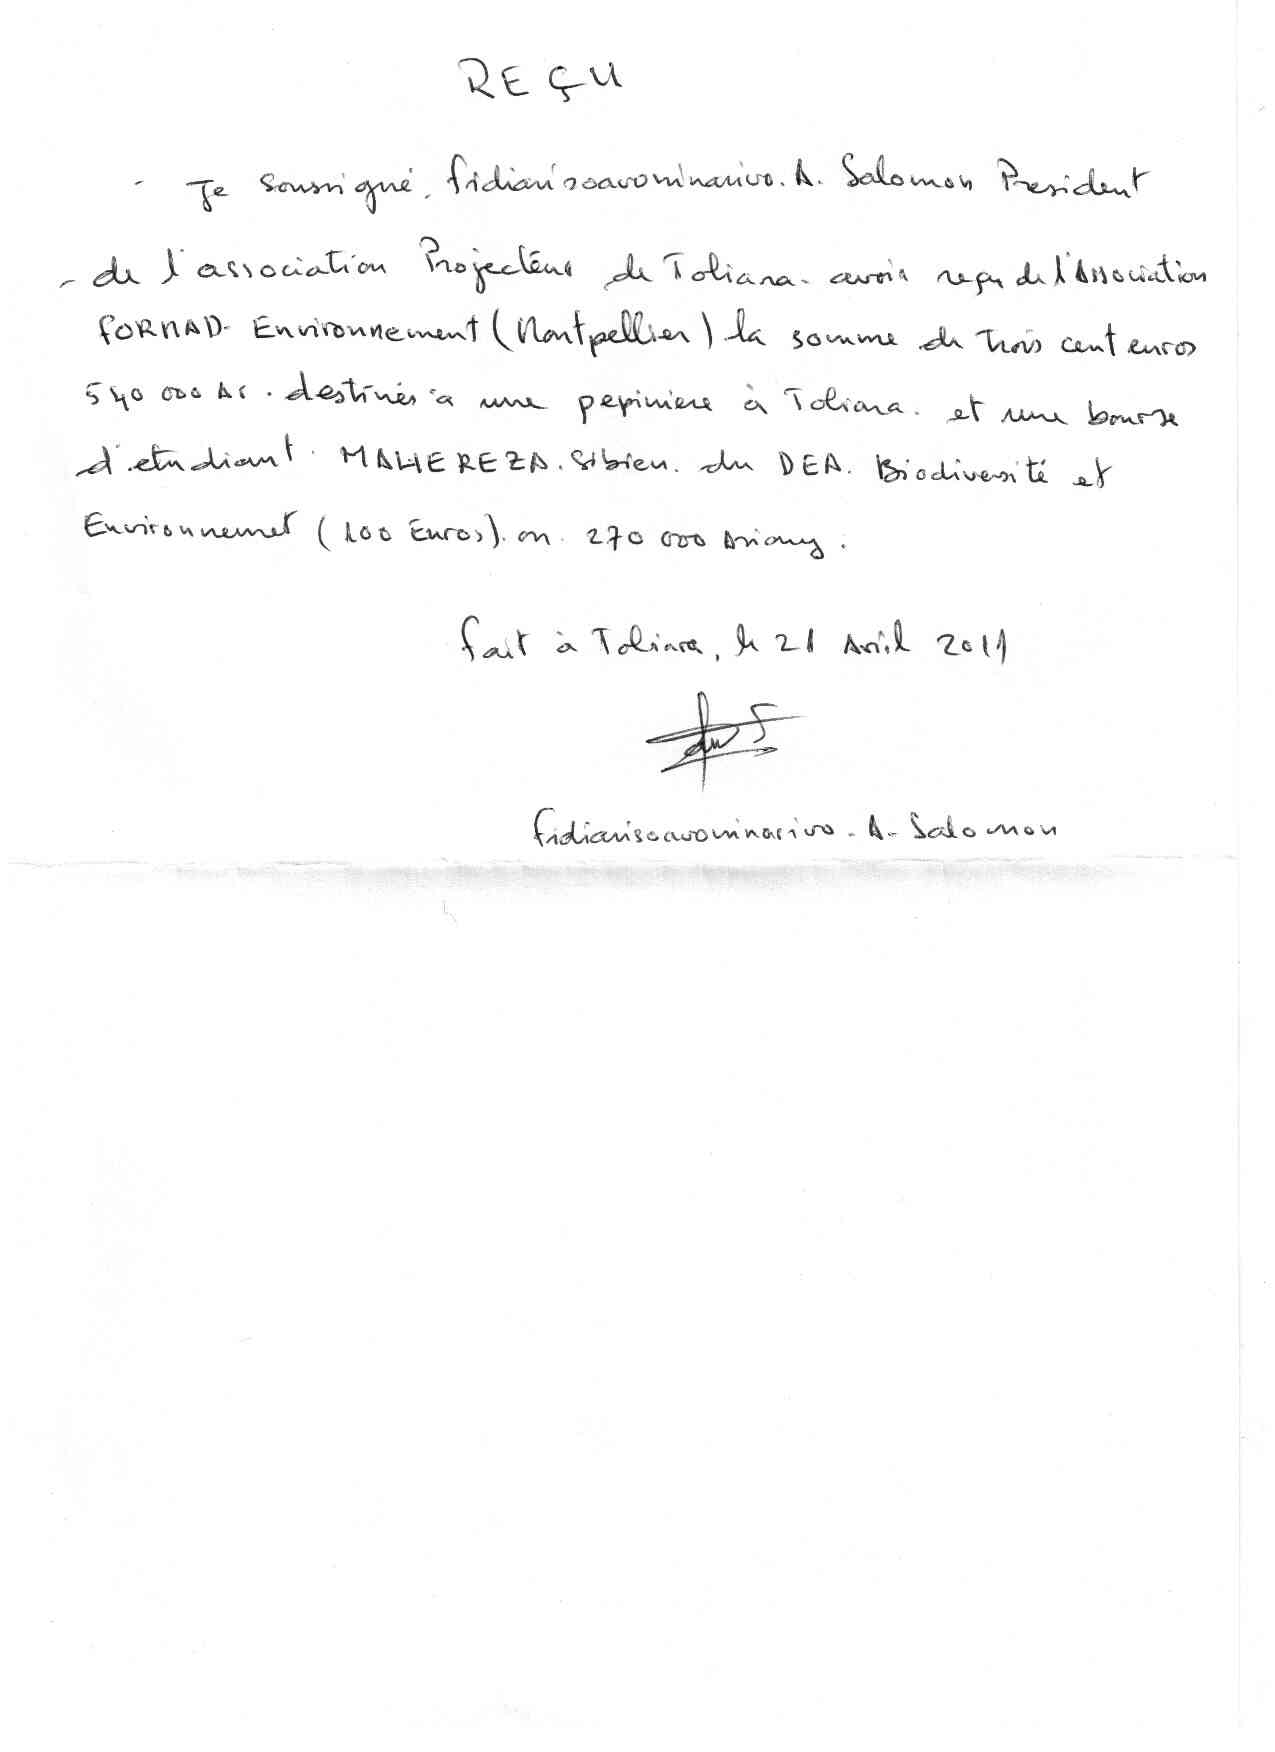 REÇU
- Je soussigné, fidiarisoavoninarivo. A. Salomon President
- de l'association Projecteurs de Toliara. avoir reçu de l'Association
FORMAD- Environnement (Montpellier) la somme de trois cent euros
540 000 Ar. destinés à une pepiniere à Toliara. et une bourse
d'etudiant. MAHEREZA. Sibien. du DEA. Biodiversité et
Environnemet (100 Euros). ou. 270 000 Ariary.
fait à Toliara, le 21 Avril 2011
fidiarisoavoninarivo - A - Salomon